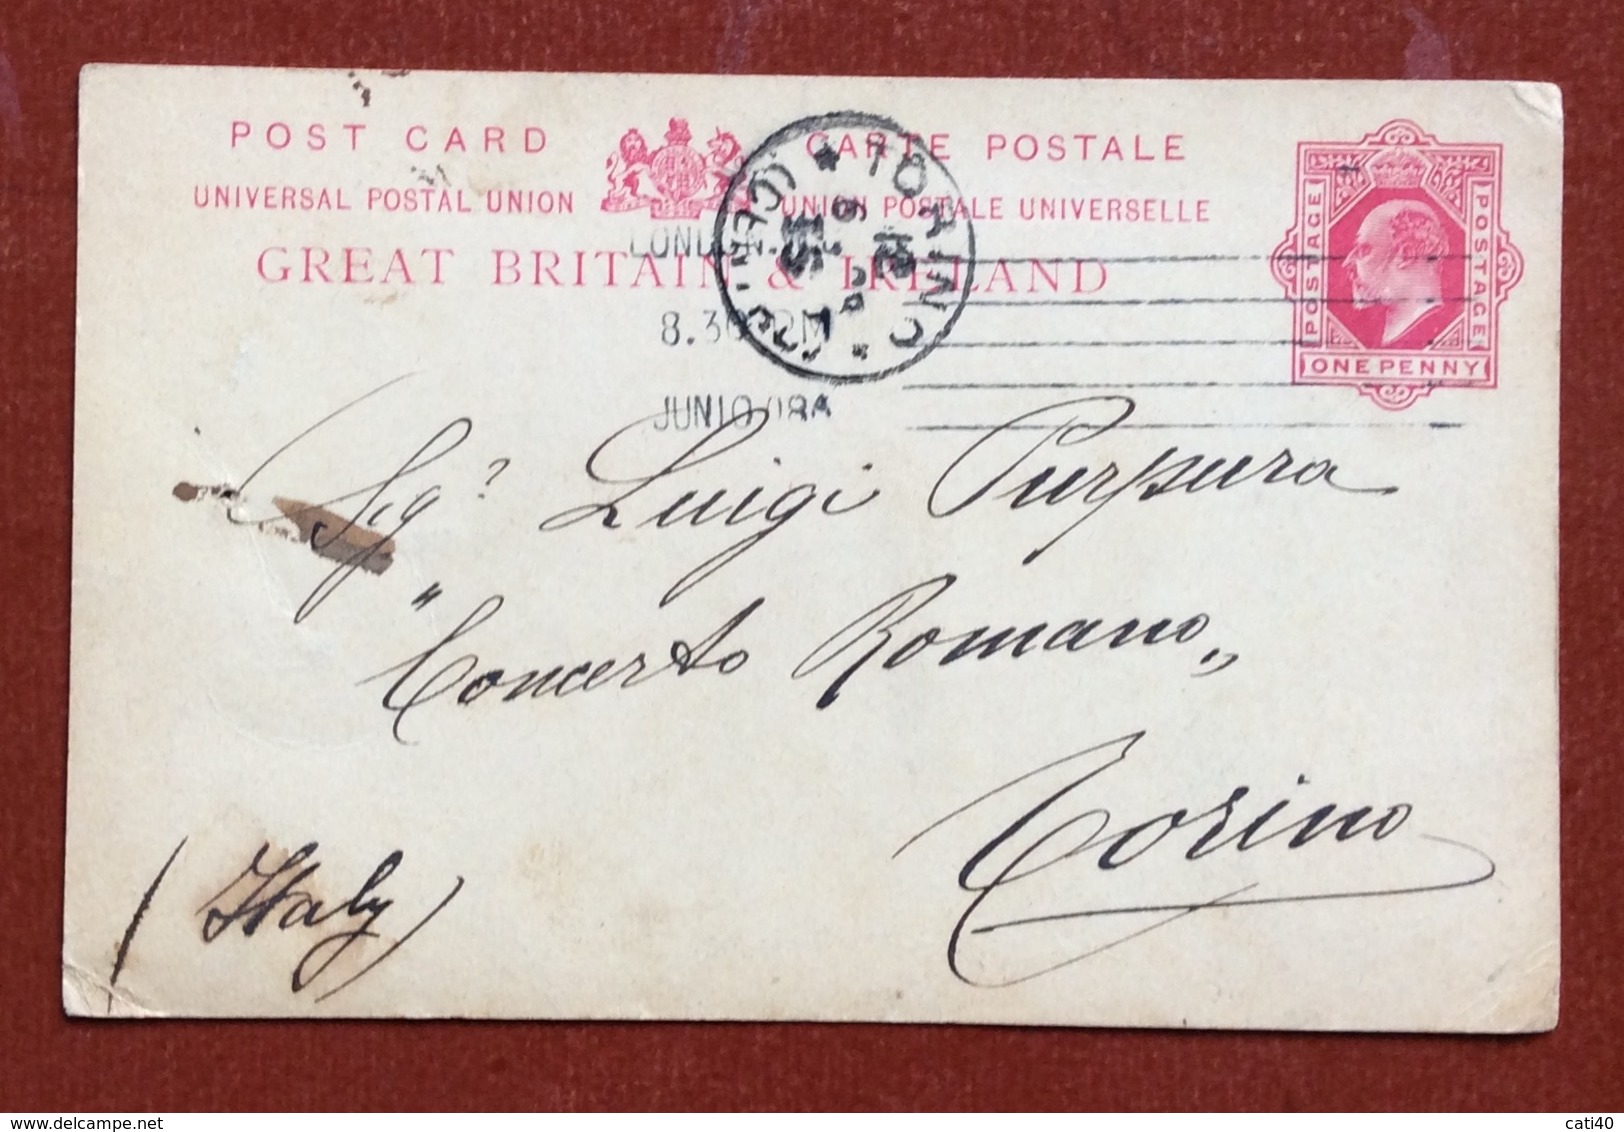 POST CARD
CARTE POSTALE
UNIVERSAL POSTAL UNION
UNION POSTALE UNIVERSELLE
GREAT BRITAIN & IRELAND
POSTAGE
POSTAGE
ONE PENNY
TORINO
12
LONDON.
8.30 PM
JUN 10 08A
Sigr Luigi Purpura
"Concerto Romano„
Torino
(Italy)
delcampe.net
cati40